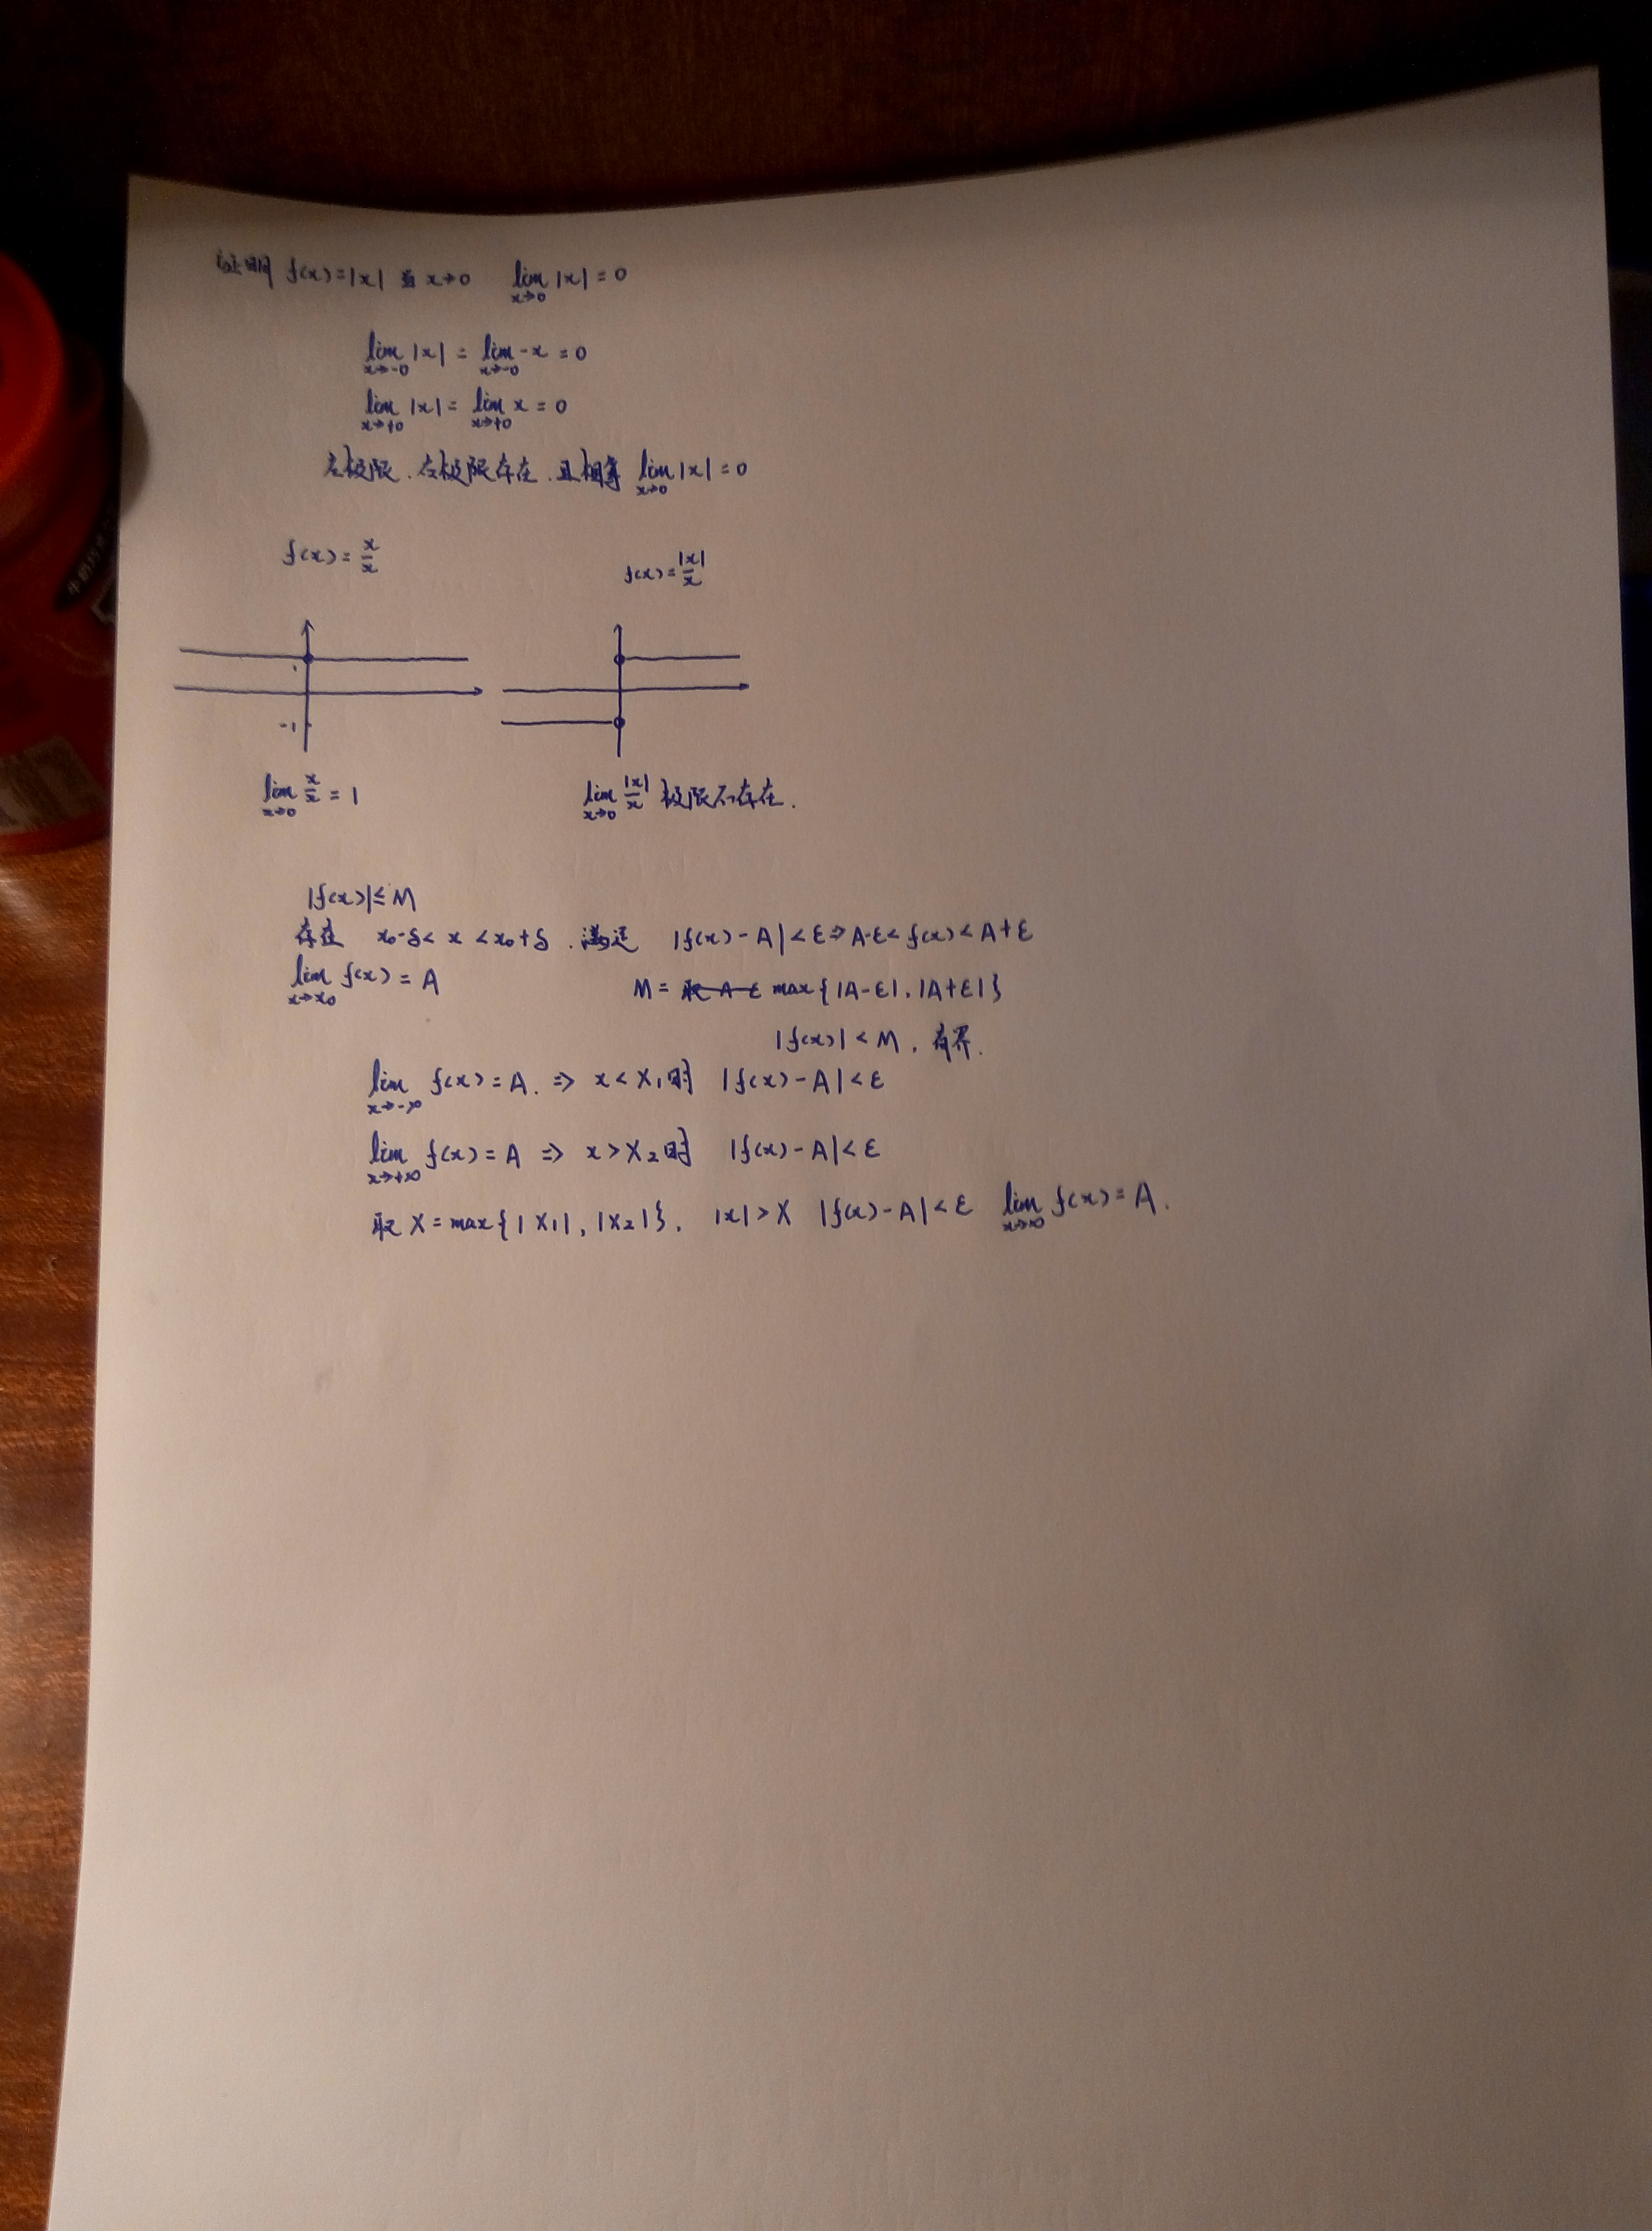 证明 f(x)=|x| 当 x→0 lim x→0 |x|=0
lim x→-0 |x| = lim x→-0 -x = 0
lim x→+0 |x| = lim x→+0 x = 0
左极限.右极限存在.且相等 lim x→0 |x|=0
f(x)= x/x
f(x)= |x|/x
-1
lim x→0 x/x = 1
lim x→0 |x|/x 极限不存在.
|f(x)|≤M
存在 x₀-δ< x <x₀+δ .满足 |f(x)-A|<ε⇒A-ε< f(x)<A+ε
lim x→x₀ f(x) = A
M = 取 A-ε max{|A-ε|.|A+ε|}
|f(x)|<M, 有界.
lim x→-∞ f(x)=A. ⇒ x<X₁时 |f(x)-A|<ε
lim x→+∞ f(x)=A ⇒ x>X₂时 |f(x)-A|<ε
取 X=max{|X₁|, |X₂|}. |x|>X |f(x)-A|<ε lim x→∞ f(x)=A.